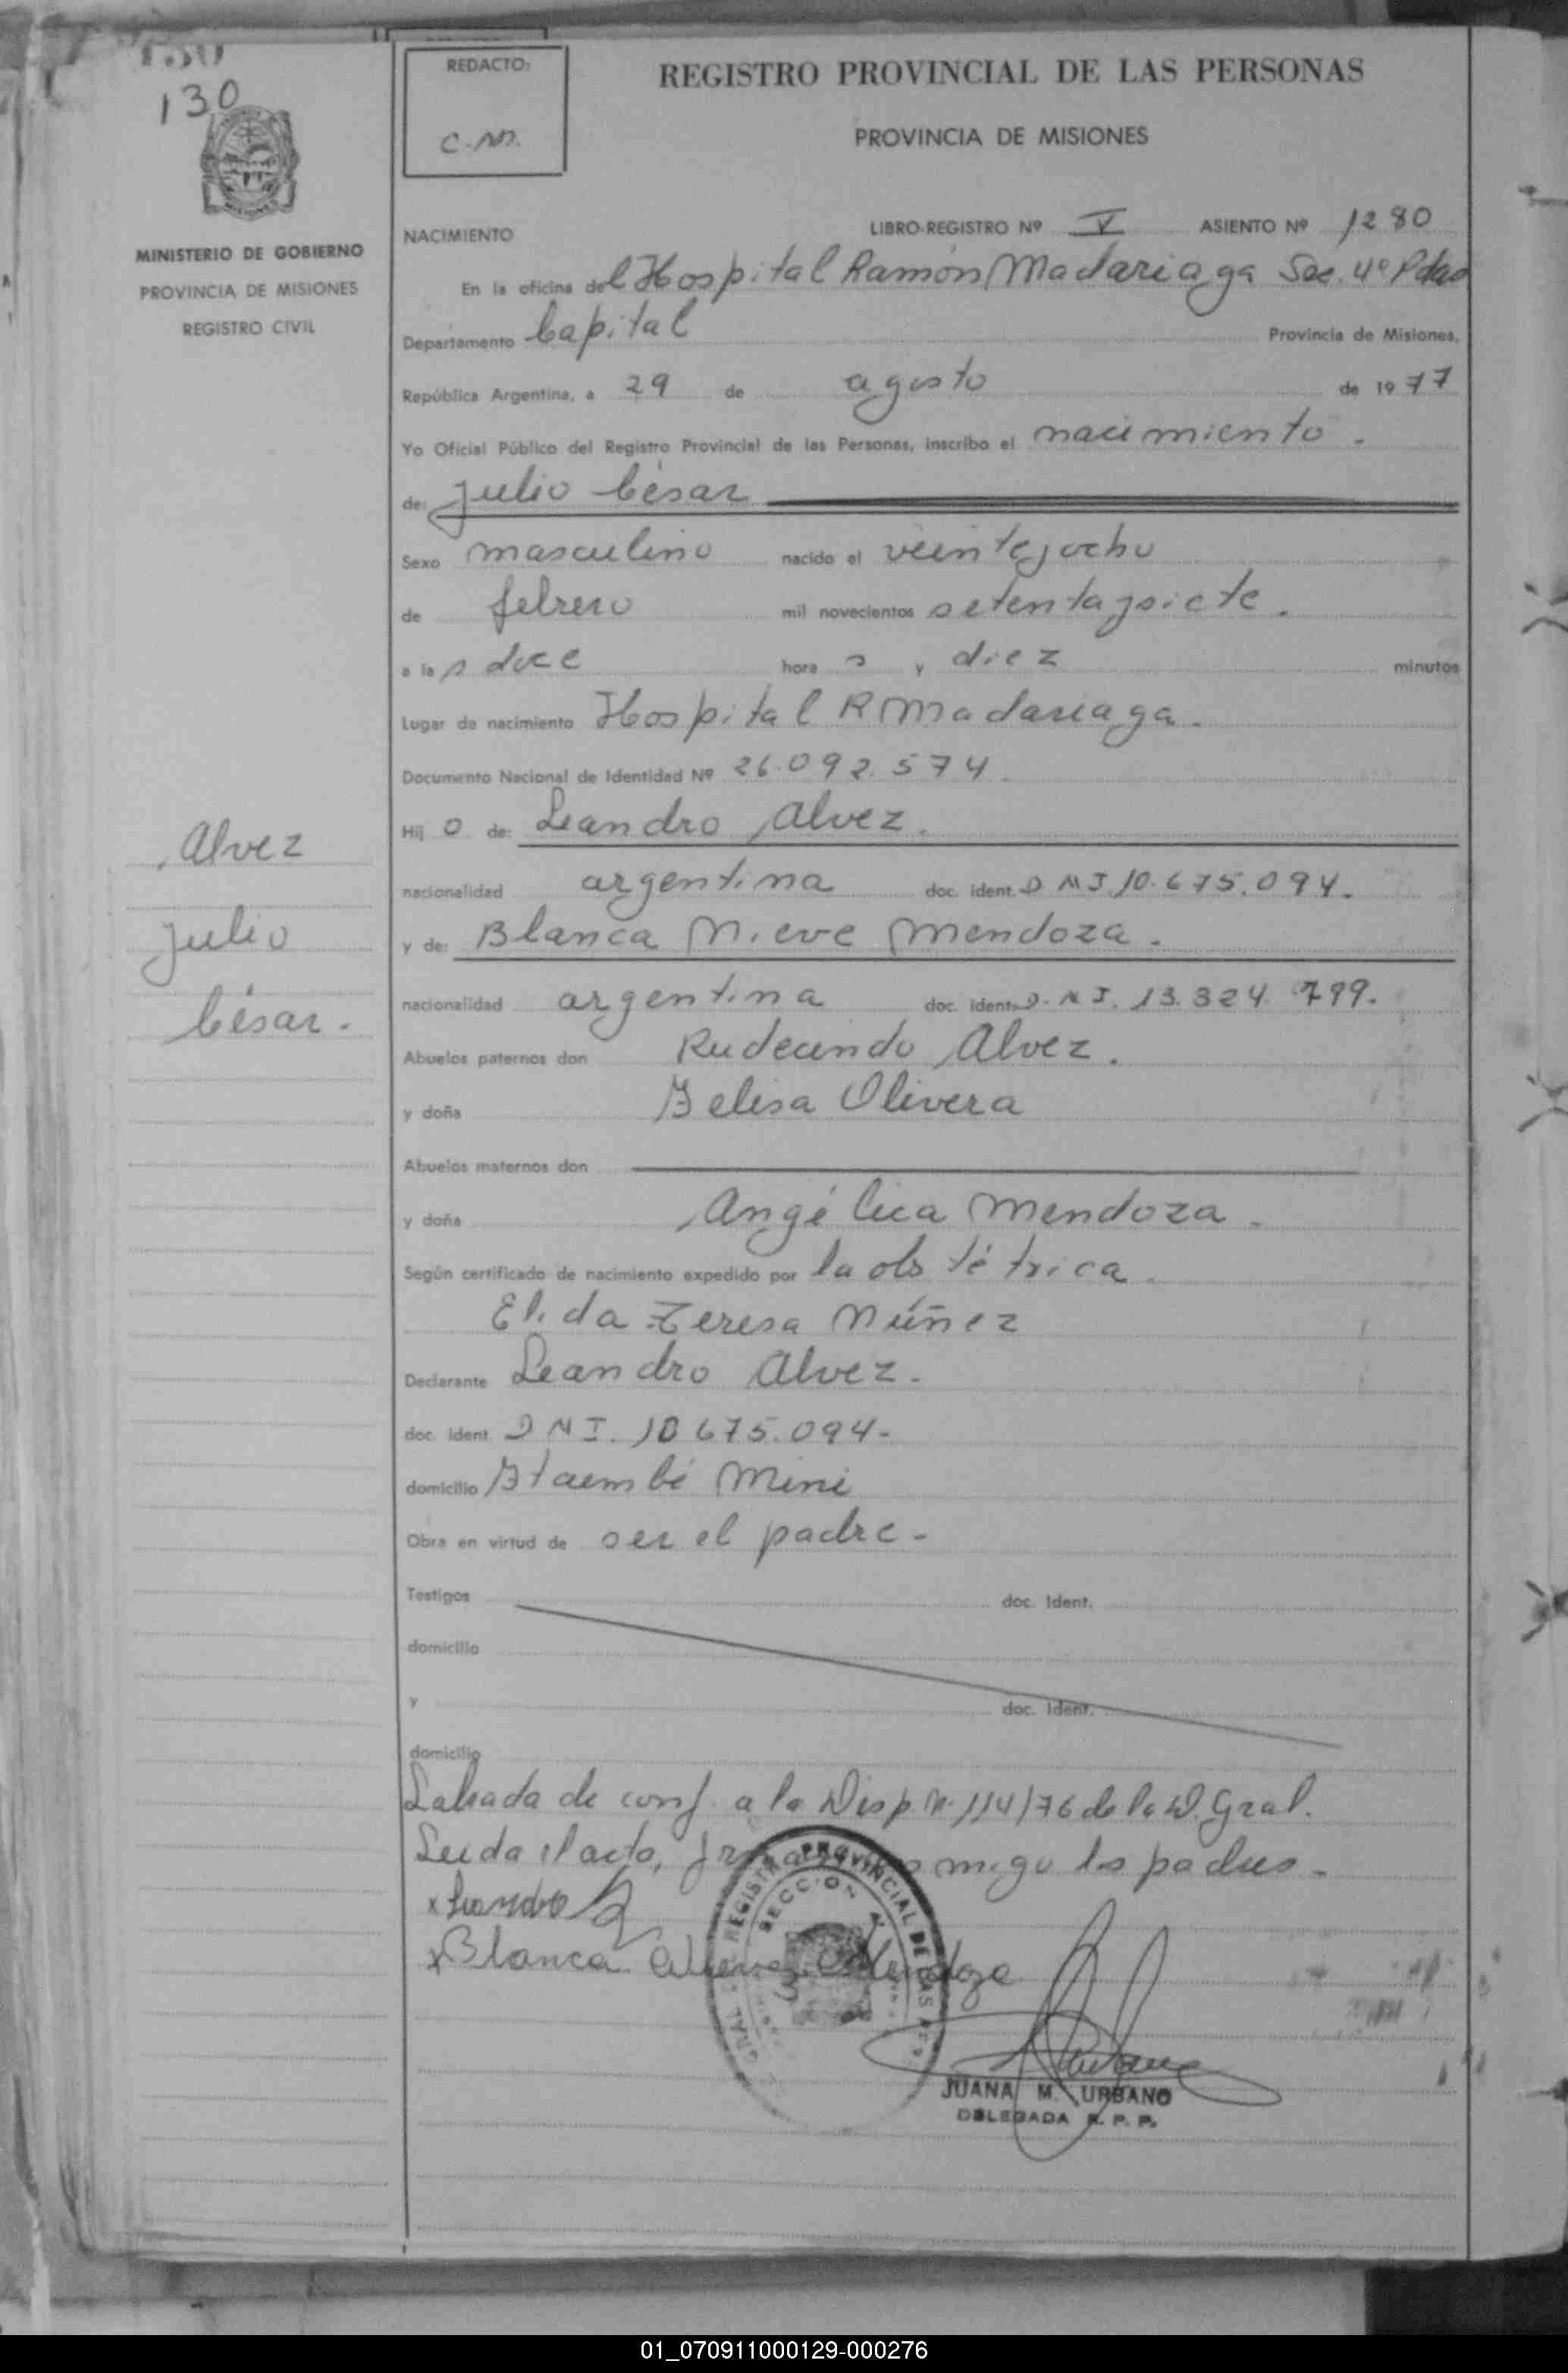 130
130
REDACTO:
C.M.
REGISTRO PROVINCIAL DE LAS PERSONAS
PROVINCIA DE MISIONES
MINISTERIO DE GOBIERNO
PROVINCIA DE MISIONES
REGISTRO CIVIL
NACIMIENTO LIBRO-REGISTRO Nº V ASIENTO Nº 1280
En la oficina del Hospital Ramón Madariaga Sec. 4º Pdas
Departamento Capital Provincia de Misiones,
República Argentina, a 29 de agosto de 1977
Yo Oficial Público del Registro Provincial de las Personas, inscribo el nacimiento.
de: Julio César
Sexo masculino nacido el veinteyocho
de febrero mil novecientos setentaysiete.
a las doce horas y diez minutos
Lugar de nacimiento Hospital R Madariaga.
Documento Nacional de Identidad Nº 26.092.574.
Hijo de: Leandro Alvez.
nacionalidad argentina doc. ident. D N I 10.675.094.
y de: Blanca Nieve Mendoza.
nacionalidad argentina doc. ident. D. N I. 13.324.799.
Abuelos paternos don Rudecindo Alvez.
y doña Belisa Olivera
Abuelos maternos don
y doña Angélica Mendoza.
Según certificado de nacimiento expedido por la obstétrica.
Elida Teresa Núñez
Declarante Leandro Alvez.
doc. Ident. D N I. 10 675.094-
domicilio Itaembé Mini
Obra en virtud de ser el padre-
Testigos doc. Ident.
domicilio
y doc. Ident.
domicilio
Labrada de conf. a la Disp. Nº 114/76 de la D. Gral.
Leida el acta, conmigo los padres-
x Leandro
x Blanca Mendoza
Alvez
Julio
César.
REGISTRO PROVINCIAL DE LAS
SECCION
JUANA M. URBANO
DELEGADA R. P. P.
01_070911000129-000276